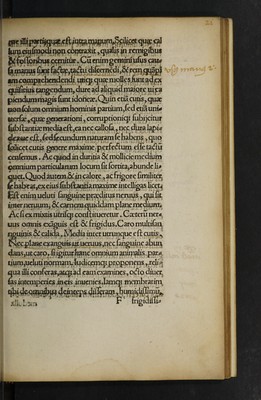 que illi partiq; quæ est intra manum, Scilicet quæ cal
lum eiusmodi non contraxit, qualis in remigibus
& fossoribus cernitur. Cu enim gemini usus cau-
sa manus sunt factæ, tactu discernedi, & rem quãpi
am comprehendendi unicę quæ molles sunt ad ex
quisitius tangendum, duræ ad aliquid maiore ui ca
piendum magis sunt idoneæ. Quin etiã cutis, quæ
non solum omnium hominis partium, sed etiã uni
uersæ, quæ generationi, corruptioniq; subijcitur
substantiæ media est, ea nec callosa, nec dura lapi-
deaue est, sed secundum naturam se habens, quo
scilicet cutis genere maxime perfectum esse tactũ
censemus. Ac quod in duritia & mollicie medium
omnium particularum locum sit sortita, abunde li-
quet. Quod autem & in calore, ac frigore similiter
se habeat, ex eius substantia maxime intelligas licet,
Est enim ueluti sanguine præditus neruus, qui sit
inter neruum, & carnem quiddam plane medium,
Ac si ex mixtis utrisq; constitueretur. Cæterũ ner-
uus omnis exãguis est & frigidus, Caro multi san-
guinis & calida, Media inter utrunque est cutis,
Nec plane exanguis ut neruus, nec sanguine abun
dans, ut caro, Si igitur hanc omnium animalis par-
tium, ueluti normam, Iudicemq; proponens, reli-
qua illi conferas, atq; ad eam examines, octo diuer
sas intemperies in eis inuenies, Iamq; membratim
tibi de omnibus deinceps disseram, humidissima,
F frigidissi-